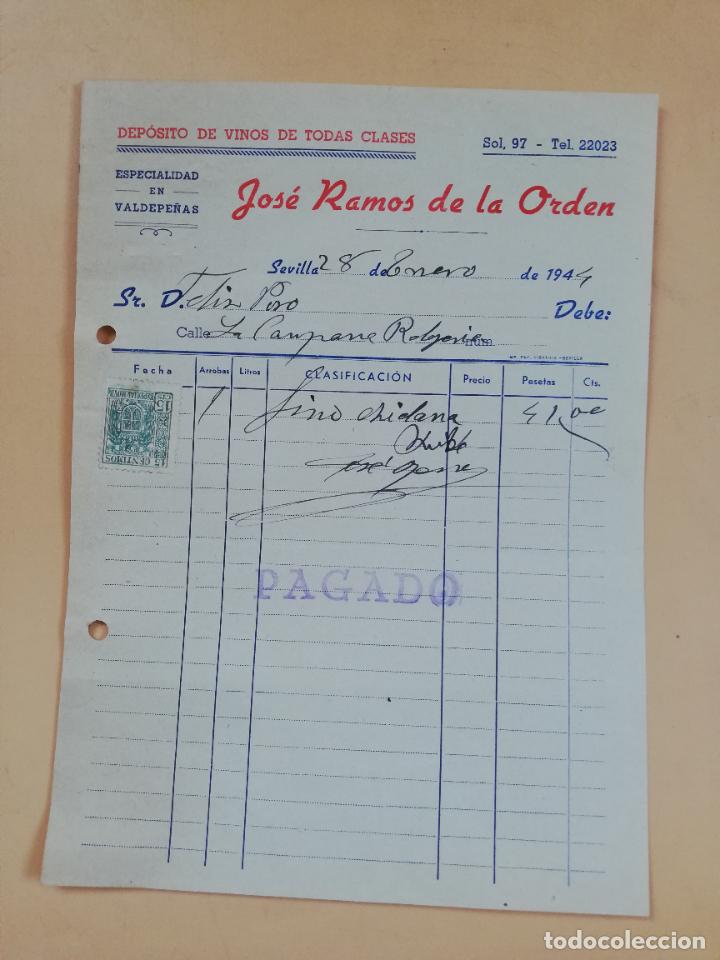 DEPÓSITO DE VINOS DE TODAS CLASES
Sol, 97 - Tel. 22023
ESPECIALIDAD
EN
VALDEPEÑAS
José Ramos de la Orden
Sevilla 28 de Enero de 1944
Sr. D. Felix Poro Debe:
Calle La Campana
Fecha Arrobas Litros CLASIFICACIÓN Precio Pesetas Cts.
1 fino 41,00
Recibí
José
15 CENTIMOS
ESPECIAL MOVIL
PAGADO
todocoleccion.net